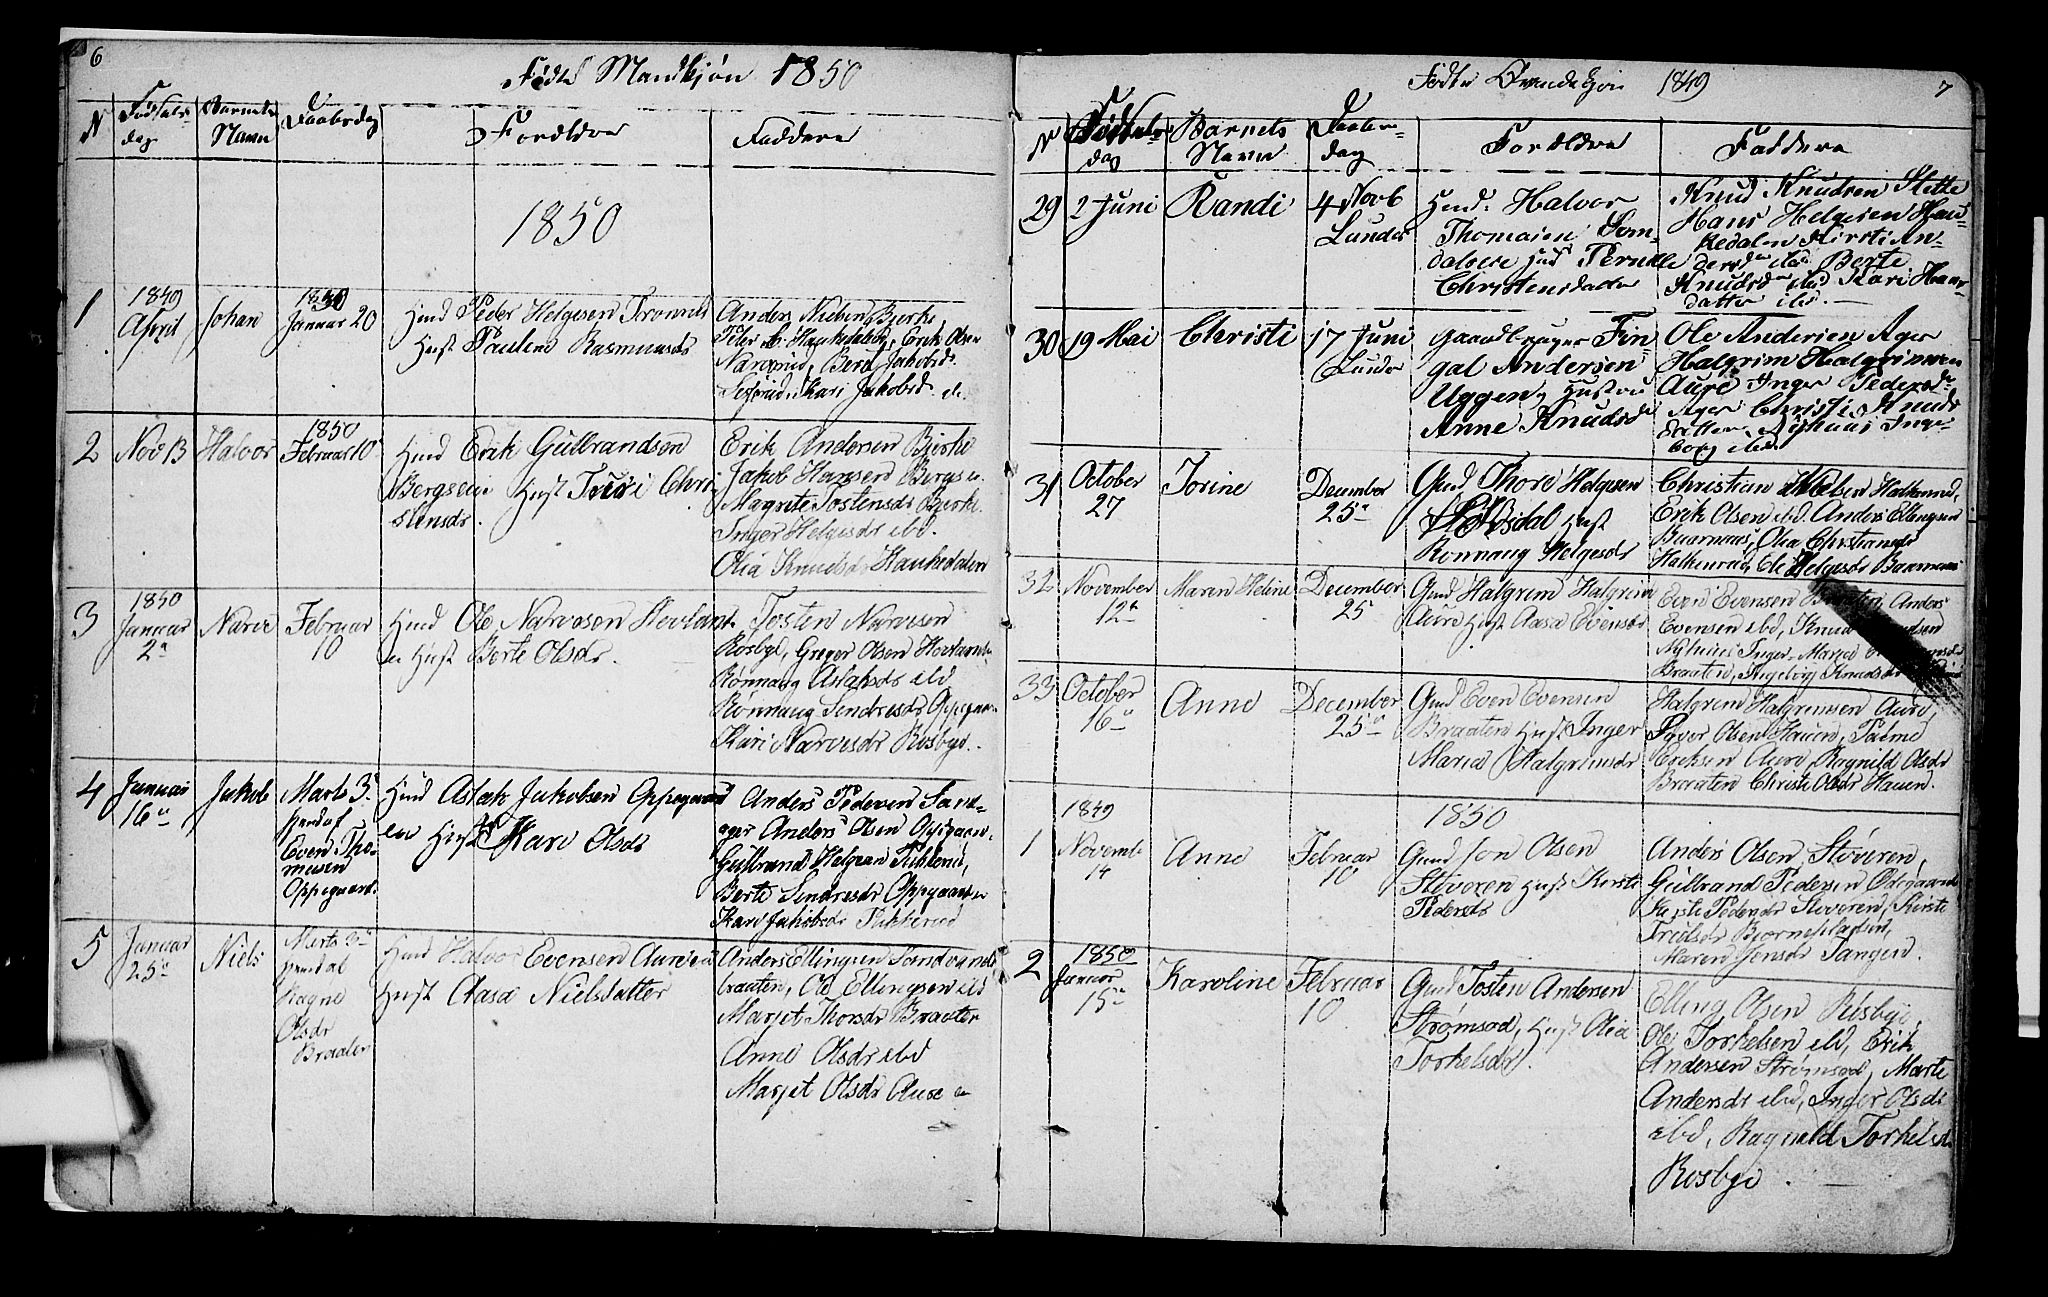 6
Født Mandkjøn 1850
N
Fødsels-
dag
Barnets
Navn
Daabsdag
Forældre
Faddere
1850
1
1849
April
Johan
1850
Januar 20
Hmd Peder Helgesen Tronrud
Hust Pauline Rasmusds
Anders Nielsen Bjerke,
Peter Haukedalen, Erik Olsen
Narverud, Berit Jakobsd.
Kari Jakobsd. d.
2
Nov 13
Halvor
1850
Februar 10
Hmd Erik Gulbrandsen
Bergseie Hust Turi Chri-
stensdr.
Erik Andersen Bjerke
Jakob Hansen Bergsei.
Margrete Tostensdr Bjerke.
Inger Helgesdr ibd.
Olia Knudsdr Haukedalen
3
1850
Januar
2a
Narve
Februar
10
Hmd Ole Narvesen Hovland-
en Hust Berte Olsdr.
Tosten Narvesen
Rosbye, Greger Olsen Hovland
Rønnaug Aslaksdr ibd
Rønnaug Sindresdr Oppegaar-
Kari Narvesdr Rosbye.
4
Januar
16a
Jakob
Marts 3.
Even Tho-
mesen
Oppegaard.
Hmd Aslak Jakobsen Oppegaard
en Hust Kari Olsdr
Anders Pedersen Sand-
ager Anders Olsen Oppegaar.
Gulbrand Helgesen
Berte Sindresdr Oppegaarden
Kari Jakobsdr
5
Januar
25a
Niels
Marts 3a
Ragne
Olsdr
Braaten
Hmd Halvor Evensen Aureeie
Hust Aasa Nielsdatter
Anders Ellingsen Sandvands
braaten, Ole Ellingsen ibd
Marjet Thorsdr Braaten
Anne Olsdr ibd
Marjet Olsdr Aure
Fødte Qvindekjøn 1849
7
N
Fødsels-
dag
Barnets
Navn
Daabs-
dag
Forældre
Faddere
29
2 Juni
Randi
4 Novb
Lunder
Hmd. Halvor
Thomasen Som-
dalseie Hust Pernille
Christensdatter
Knud Knudsen Slette
Hans Helgesen Hau-
kedalen Kirsti An-
dersdr ibd Berte
Knudsd ibd Kari Hans-
datter ibd.
30
19 Mai
Christi
17 Juni
Lunder
Gaardbruger Fin-
gal Andersen
Uggen, Hustru
Anne Knudsd
Ole Andersen Ager
Halgrim Halgrimsen
Aure Inger Pedersd
Ager Christi Knuds
datter Nyhuus Inge-
borg ibd.
31
October
27
Torine
December
25a
Gmd Thore Helgesen
Hust
Rønnaug Helgesdr
Christian Nielsen Halkinrud,
Erik Olsen ibd. Anders Ellingsen
Buarnæs, Olia Christiansdr
Halkinrud, Eli Helgesdr Buarnæs
32
November
12a
Maren Helene
December
25
Gmd Halgrim Halgrims
Aure Hust Aasa Evensdr
Even Evensen Braaten, Anders
Evensen ibd, Knud Knudsen
Nyhuus Inger Maria
Braaten, Ingeborg Knudsdr
33
October
16a
Anne
December
25a
Gmd Even Evensen
Braaten Hust Inger
Maria Halgrimsdr
Halgrim Halgrimsen Aure,
Paver Olsen Hauen, Paune
Eriksen Aure Ragnild Olsdr
Braaten Christi Olsdr Hauen.
1850
1
1849
Novemb
14
Anne
Februar
10
Gmd Jon Olsen
Støveren Hust Kirsti
Pedersdr
Anders Olsen Støveren,
Gulbrand Pedersen Ødegaarde
Kirsti Pedersdr Støveren, Kirsti
Trulsdr
Maren Jensdr Tangen.
2
1850
Januar
15a
Karoline
Februar
10
Gmd Tosten Andersen
Strømsod, Hust Olia
Torkelsdr.
Elling Olsen Rosbye,
Ole Torkelsen ibd, Erik
Andersen Strømsod, Marte
Andersdr ibd, Inger Olsdr
ibd, Ragnild Torkelsd
Rosbye.